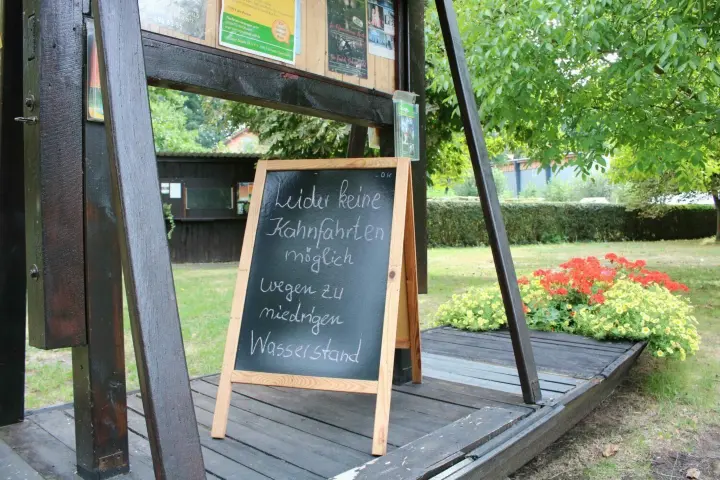 Leider keine
Kahnfahrten
möglich
wegen zu
niedrigen
Wasserstand